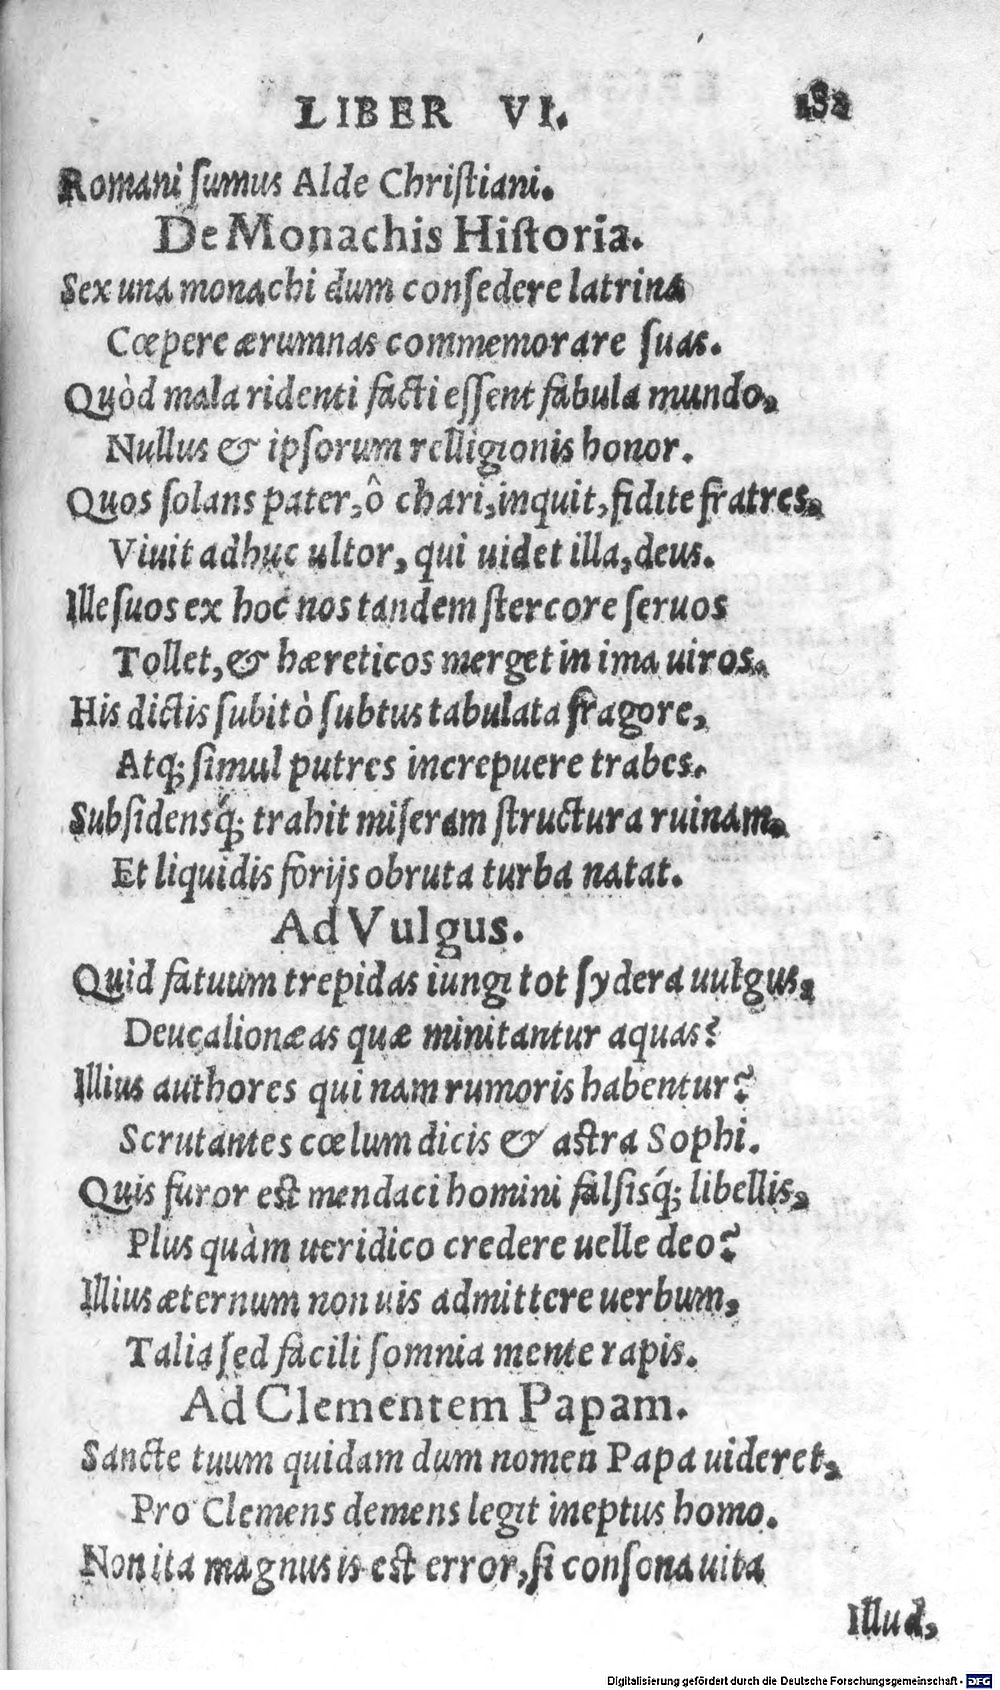 LIBER VI. 182
Romani ſumus Alde Chriſtiani.
De Monachis Hiſtoria.
Sex una monachi dum conſedere latrina
Cœpere ærumnas commemorare ſuas.
Quòd mala ridenti facti eſſent fabula mundo,
Nullus & ipſorum relligionis honor.
Quos ſolans pater, ô chari, inquit, fidite fratres,
Viuit adhuc ultor, qui uidet illa, deus.
Ille ſuos ex hoc nos tandem ſtercore ſeruos
Tollet, & hæreticos merget in ima uiros.
His dictis ſubitò ſubtus tabulata fragore,
Atq; ſimul putres increpuere trabes.
Subſidensq́; trahit miſeram ſtructura ruinam,
Et liquidis forijs obruta turba natat.
Ad Vulgus.
Quid fatuum trepidas iungi tot ſydera uulgus,
Deucalionæas quæ minitantur aquas?
Illius authores qui nam rumoris habentur?
Scrutantes cœlum dicis & aſtra Sophi.
Quis furor eſt mendaci homini falſisq́; libellis,
Plus quàm ueridico credere uelle deo?
Illius æternum non uis admittere uerbum,
Talia ſed facili ſomnia mente rapis.
Ad Clementem Papam.
Sancte tuum quidam dum nomen Papa uideret,
Pro Clemens demens legit ineptus homo.
Non ita magnus is eſt error, ſi conſona uita
Illud,
Digitalisierung gefördert durch die Deutsche Forschungsgemeinschaft - DFG